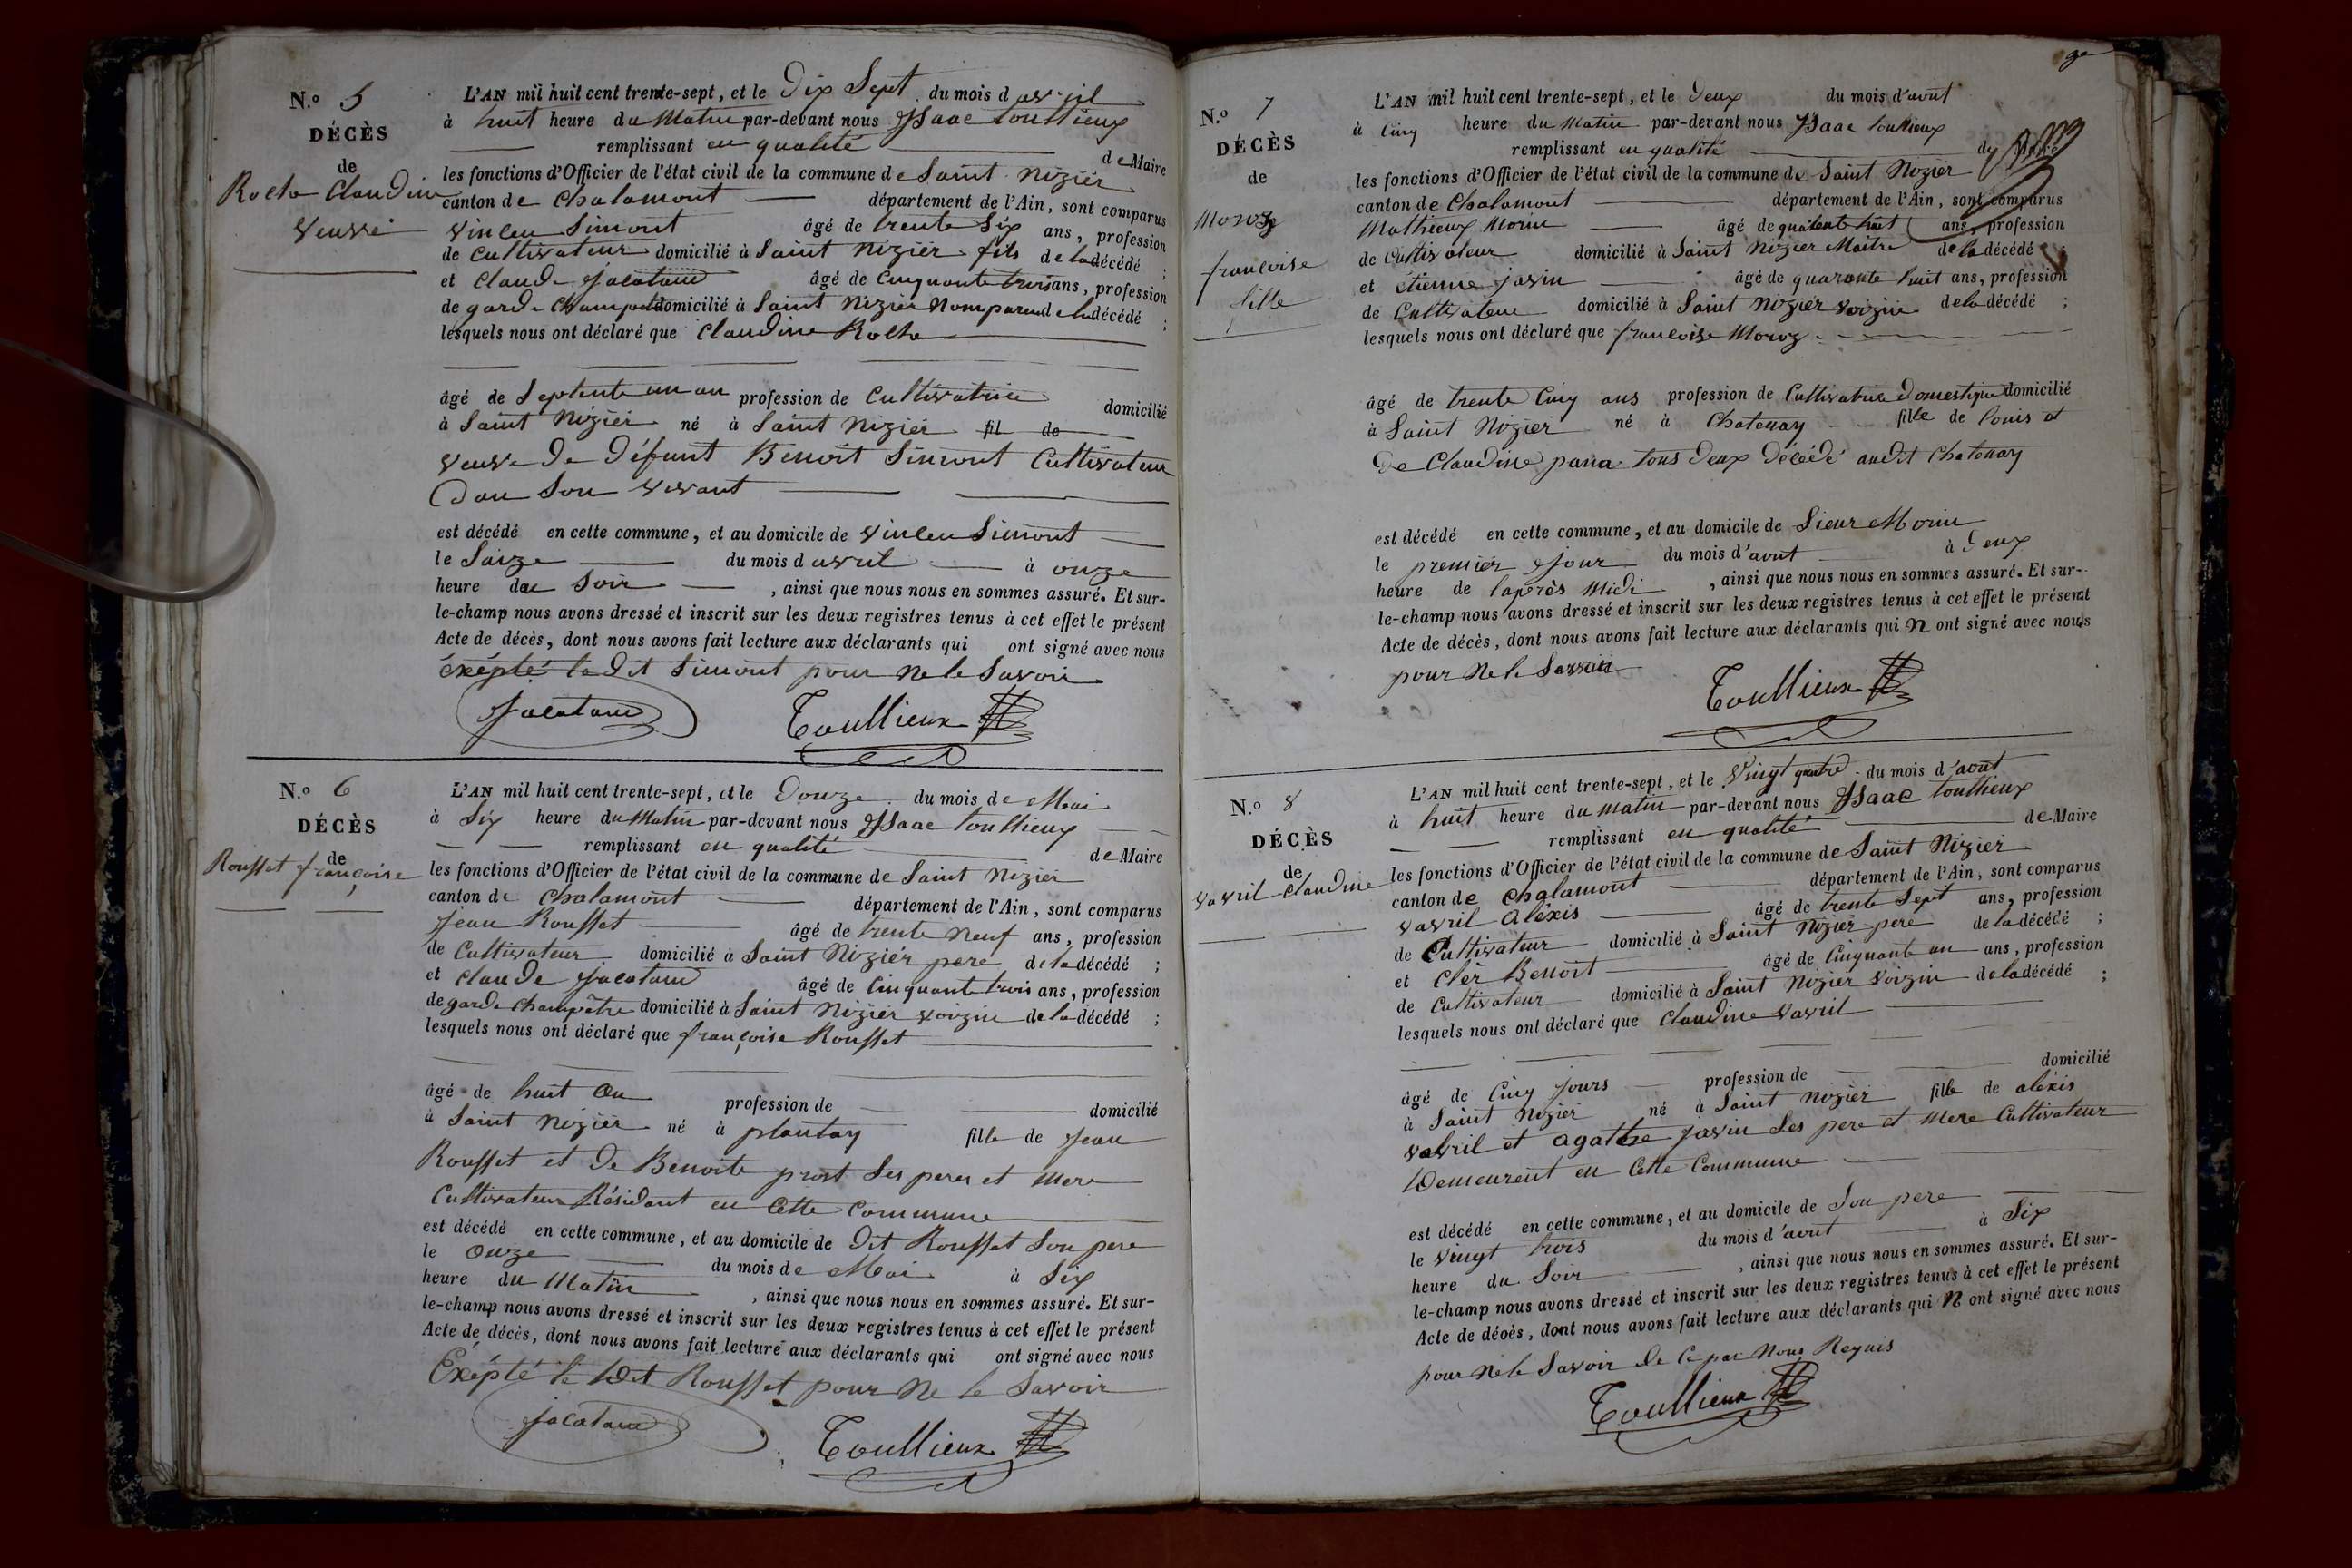 N.º 5
DÉCÈS
de
Rolho Claudine
veuve
L'AN mil huit cent trente-sept, et le dix Sept du mois d avril
à huit heure du Matin par-devant nous Isaac toullieux
remplissant en qualité de Maire
les fonctions d'Officier de l'état civil de la commune de Saint Nizier
canton de Chalamont département de l'Ain, sont comparus
Vincen Simont âgé de trente Six ans, profession
de Cultivateur domicilié à Saint Nizier fils de la décédé ;
et Claude Jacataud âgé de Cinquante trois ans, profession
de garde Champetre domicilié à Saint Nizier Nom parend de la décédé ;
lesquels nous ont déclaré que Claudine Rolho
âgé de Septente un an profession de Cultivatrice domicilié
à Saint Nizier né à Saint Nizier fil de
veuve de défunt Benoit Simont Cultivateur
dan Son vivant
est décédé en cette commune, et au domicile de Vincen Simont
le Saize du mois d avril à onze
heure du Soir , ainsi que nous nous en sommes assuré. Et sur-
le-champ nous avons dressé et inscrit sur les deux registres tenus à cet effet le présent
Acte de décès, dont nous avons fait lecture aux déclarants qui ont signé avec nous
éxépté le dit Simont pour Ne le Savoir
Jacataud Toullieux
N.º 6
DÉCÈS
de
Rousset françoise
L'AN mil huit cent trente-sept, et le Douze du mois de Mai
à Six heure du Matin par-devant nous Isaac toullieux
remplissant en qualité de Maire
les fonctions d'Officier de l'état civil de la commune de Saint Nizier
canton de Chalamont département de l'Ain, sont comparus
Jean Rousset âgé de trente Neuf ans, profession
de Cultivateur domicilié à Saint Nizier pere de la décédé ;
et Claude Jacataud âgé de Cinquante trois ans, profession
de garde Champêtre domicilié à Saint Nizier voizin de la décédé ;
lesquels nous ont déclaré que françoise Rousset
âgé de huit an profession de domicilié
à Saint Nizier né à plantay fille de Jean
Rousset et de Benoite prost Ses peres et Mere
Cultivateur Résidant en Cette Commune
est décédé en cette commune, et au domicile de dit Rousset Son pere
le onze du mois de Mai à Six
heure du Matin , ainsi que nous nous en sommes assuré. Et sur-
le-champ nous avons dressé et inscrit sur les deux registres tenus à cet effet le présent
Acte de décès, dont nous avons fait lecture aux déclarants qui ont signé avec nous
Exépté le Dit Rousset pour Ne le Savoir
Jacataud Toullieux
N.º 7
DÉCÈS
de
Moroz
françoise
fille
L'AN mil huit cent trente-sept, et le Deux du mois d'aout
à Cinq heure du Matin par-devant nous Isaac toullieux
remplissant en qualité de Maire
les fonctions d'Officier de l'état civil de la commune de Saint Nizier
canton de Chalamont département de l'Ain, sont comparus
Mathieux Morin âgé de quarante huit ans, profession
de Cultivateur domicilié à Saint Nizier Maitre de la décédé ;
et étienne javin âgé de quarante huit ans, profession
de Cultivateur domicilié à Saint Nizier voizin de la décédé ;
lesquels nous ont déclaré que françoise Moroz
âgé de trente Cinq ans profession de Cultivatrice Domestique domicilié
à Saint Nizier né à Chatenay fille de Louis et
De Claudine pana tous deux décédé audit Chatenay
est décédé en cette commune, et au domicile de Sieur Morin
le premier Jour du mois d'aout à Deux
heure de l'après Midi , ainsi que nous nous en sommes assuré. Et sur-
le-champ nous avons dressé et inscrit sur les deux registres tenus à cet effet le présent
Acte de décès, dont nous avons fait lecture aux déclarants qui N ont signé avec nous
pour Ne le Savoir
Toullieux
N.º 8
DÉCÈS
de
vavril Claudine
L'AN mil huit cent trente-sept, et le Vingt quatre du mois d'aout
à huit heure du matin par-devant nous Isaac toullieux
remplissant en qualité de Maire
les fonctions d'Officier de l'état civil de la commune de Saint Nizier
canton de Chalamont département de l'Ain, sont comparus
vavril Aléxis âgé de trente Sept ans, profession
de Cultivateur domicilié à Saint Nizier pere de la décédé ;
et Clér Benoit âgé de Cinquante un ans, profession
de Cultivateur domicilié à Saint Nizier voizin de la décédé ;
lesquels nous ont déclaré que Claudine vavril
âgé de Cinq Jours profession de domicilié
à Saint Nizier né à Saint Nizier fille de aléxis
vavril et agathe javin Ses pere et Mere Cultivateur
Demeurent en Cette Commune
est décédé en cette commune, et au domicile de Son pere
le Vingt trois du mois d'aout à Six
heure du Soir , ainsi que nous nous en sommes assuré. Et sur-
le-champ nous avons dressé et inscrit sur les deux registres tenus à cet effet le présent
Acte de décès, dont nous avons fait lecture aux déclarants qui N ont signé avec nous
pour Ne le Savoir de Ce par Nous Requis
Toullieux